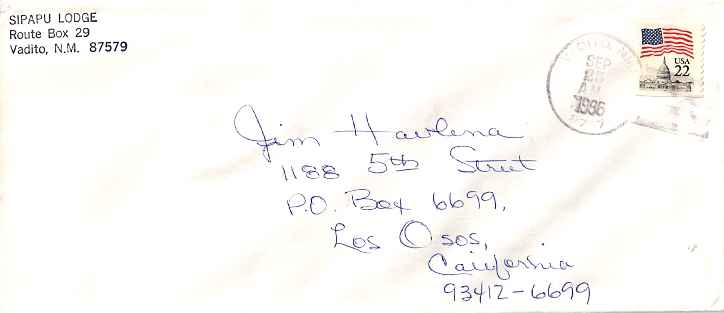 SIPAPU LODGE
Route Box 29
Vadito, N.M. 87579
VADITO, NM
SEP
25
AM
1986
USA
22
Jim Havlena
1188 5th Street
P.O. Box 6699,
Los Osos,
California
93412-6699